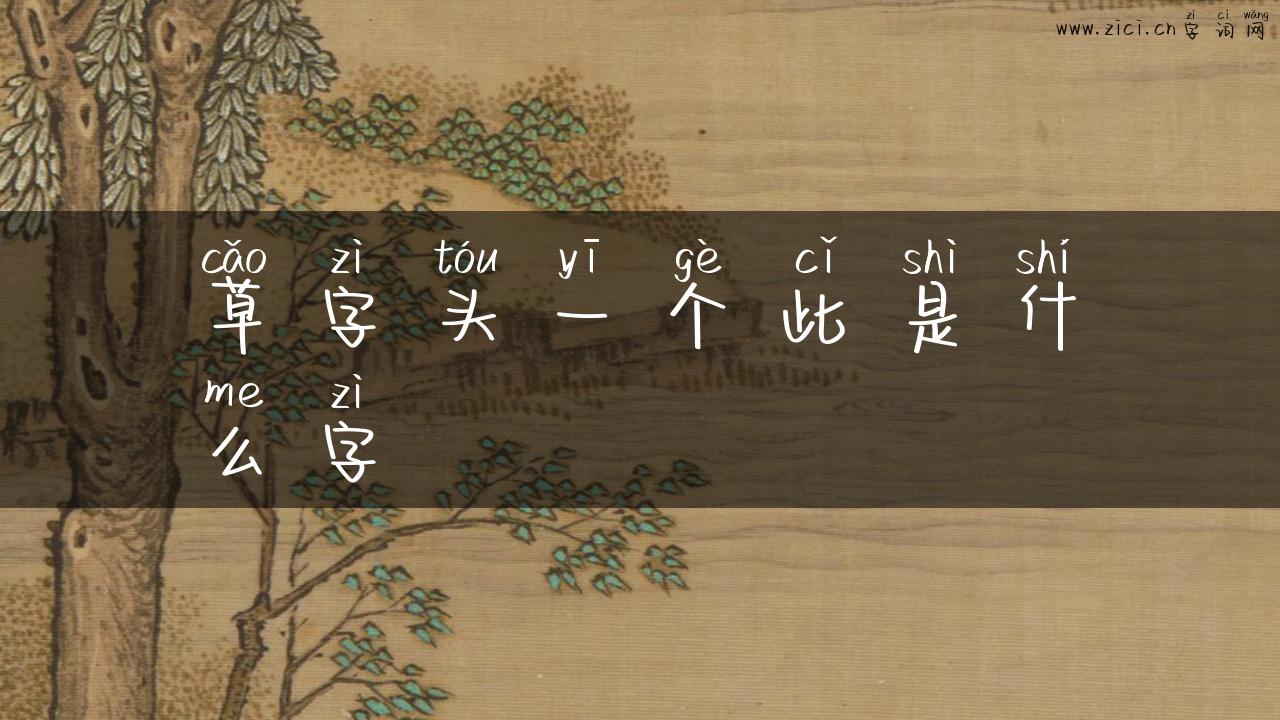 zì cí wǎng
www.zici.cn 字词网
cǎo zì tóu yī gè cǐ shì shí
草字头一个此是什
me zì
么字